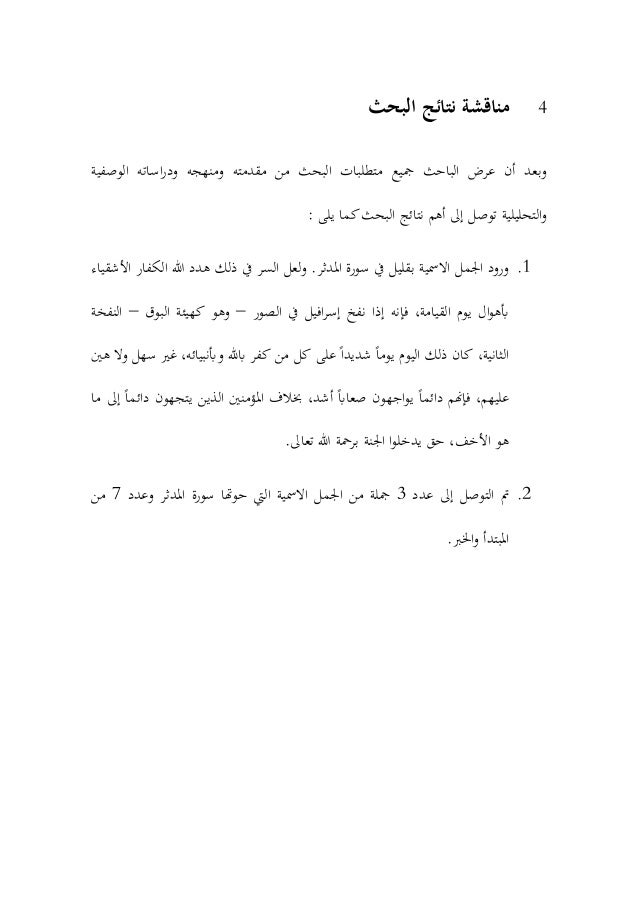 4 مناقشة نتائج البحث
وبعد أن عرض الباحث جميع متطلبات البحث من مقدمته ومنهجه ودراساته الوصفية
والتحليلية توصل إلى أهم نتائج البحث كما يلى :
1. ورود الجمل الاسمية بقليل في سورة المدثر. ولعل السر في ذلك هدد الله الكفار الأشقياء
بأهوال يوم القيامة، فإنه إذا نفخ إسرافيل في الصور – وهو كهيئة البوق – النفخة
الثانية، كان ذلك اليوم يوماً شديداً على كل من كفر بالله وبأنبيائه، غير سهل ولا هين
عليهم، فإنهم دائماً يواجهون صعاباً أشد، بخلاف المؤمنين الذين يتجهون دائماً إلى ما
هو الأخف، حق يدخلوا الجنة برحمة الله تعالى.
2. تم التوصل إلى عدد 3 جملة من الجمل الاسمية التي حوتها سورة المدثر وعدد 7 من
المبتدأ والخبر.